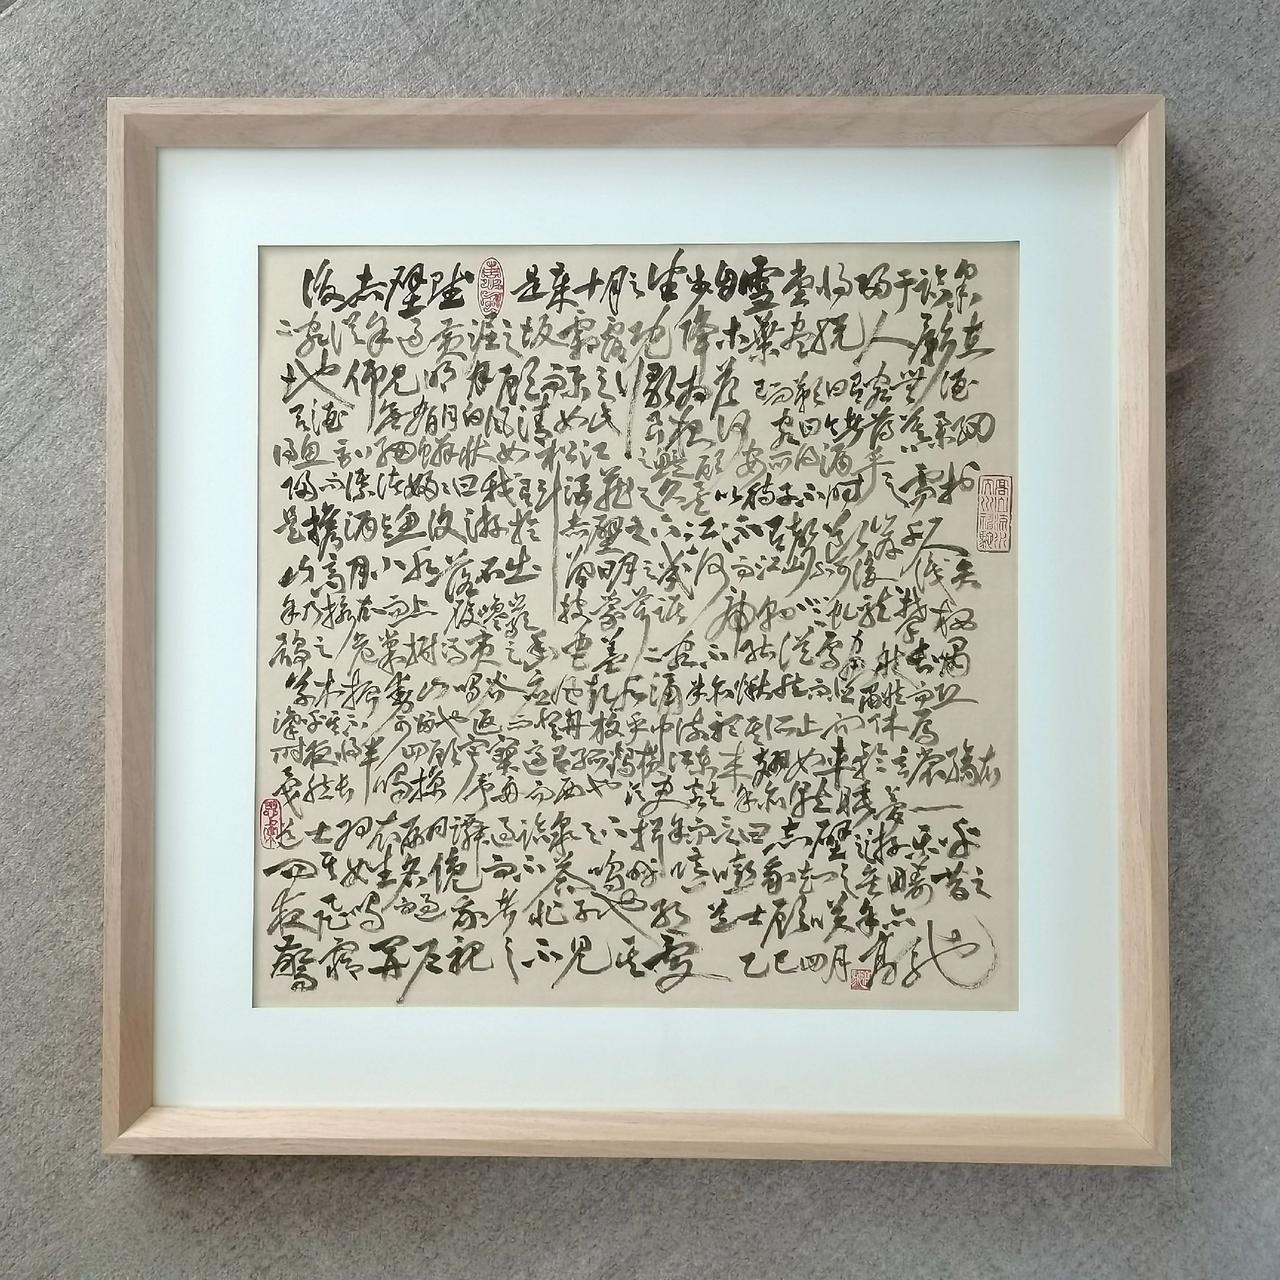 後赤壁賦 是歲十月之望步自雪堂將歸于臨皋
二客從予過黃泥之坂霜露既降木葉盡脫人影在
地仰見明月顧而樂之行歌相答已而歎曰有客無酒
有酒無肴月白風清如此良夜何客曰今者薄暮舉網
得魚巨口細鱗狀如松江之鱸顧安所得酒乎
歸而謀諸婦婦曰我有斗酒藏之久矣以待子不時之需於
是攜酒與魚復遊於赤壁之下江流有聲斷岸千尺
山高月小水落石出曾日月之幾何而江山不可復識矣
予乃攝衣而上履巉巖披蒙茸踞虎豹登虬龍攀棲
鶻之危巢俯馮夷之幽宮蓋二客不能從焉劃然長嘯
草木振動山鳴谷應風起水涌予亦悄然而悲肅然而恐
凜乎其不可留也返而登舟放乎中流聽其所止而休焉
時夜將半四顧寂寥適有孤鶴橫江東來翅如車輪玄裳縞衣
戛然長鳴掠予舟而西也須臾客去予亦就睡夢一
道士羽衣蹁躚過臨皋之下揖予而言曰赤壁之遊樂乎
問其姓名俛而不答嗚呼噫嘻我知之矣疇昔之
夜飛鳴而過我者非子也耶道士顧笑予亦
驚寤開戶視之不見其處 乙巳四月高馳